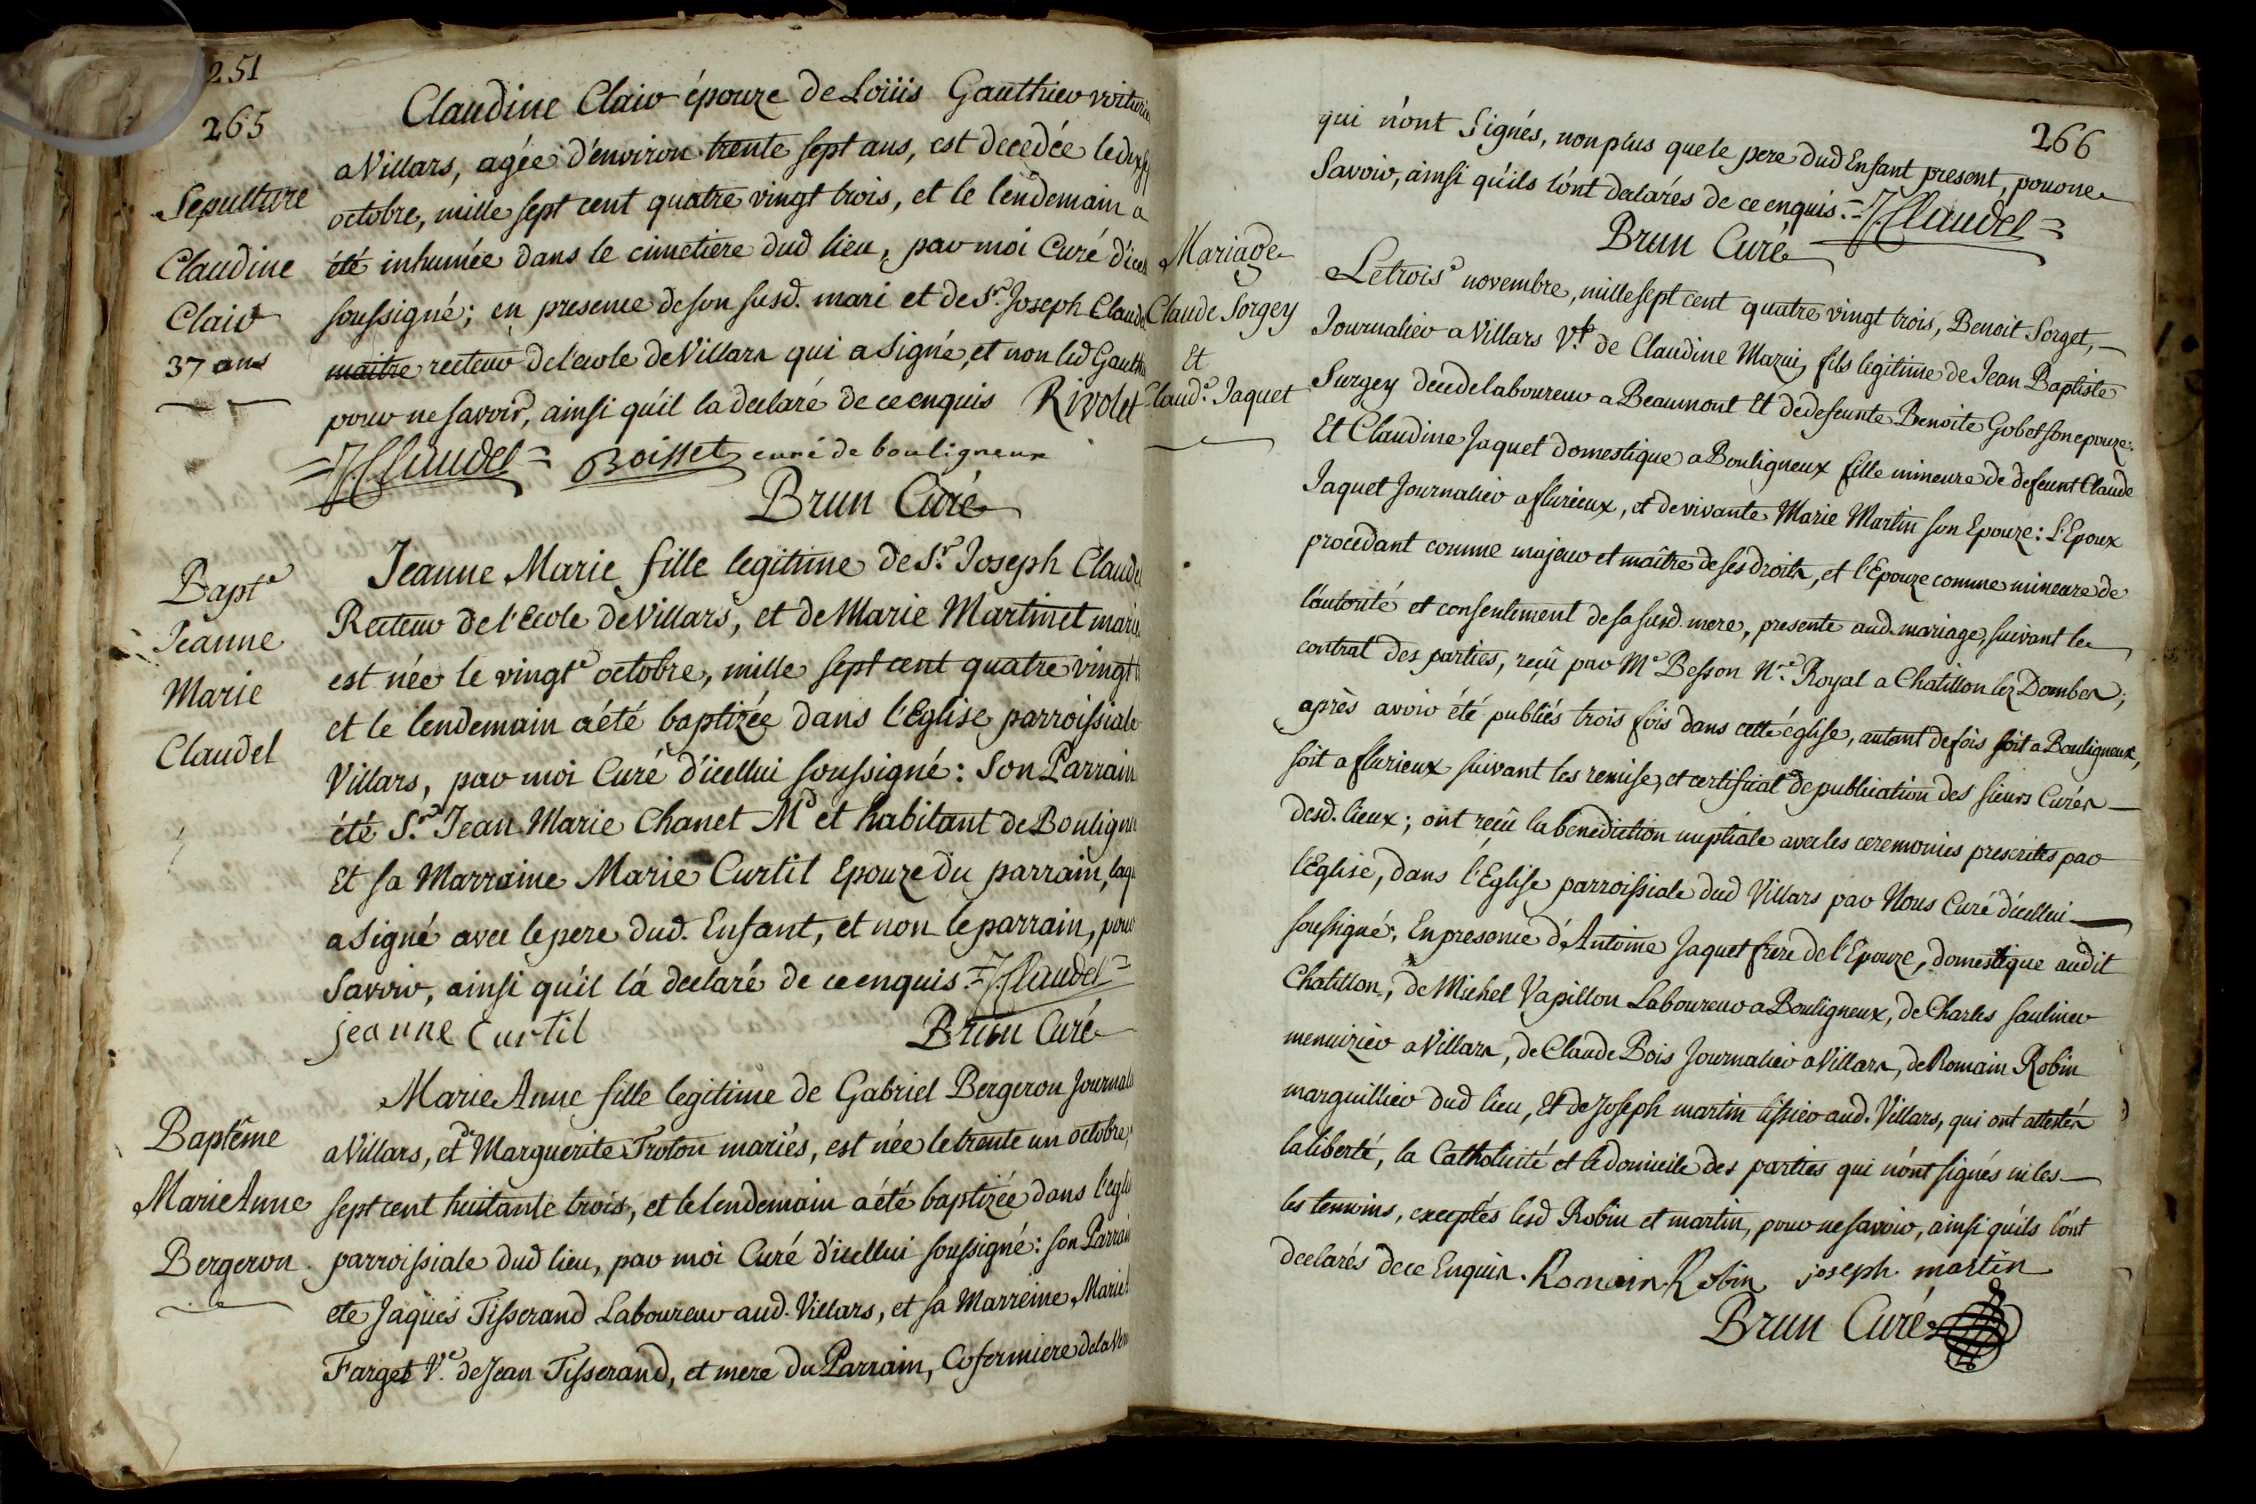 251
265
Sepulture
Claudine
Clair
37 ans
Claudine Clair épouze de Loüis Gauthier voiturie
a Villars, agée d'environ trente sept ans, est decedée le
octobre, mille sept cent quatre vingt trois, et le lendemain a
été inhumée dans le cimetiere dud lieu, par moi Curé d'icel
soussigné; en presence de son susd. mari et de Sr. Joseph Claude
maitre recteur de l'ecole de Villars qui a signé, et non led Gauth
pour ne savoir, ainsi qu'il la declaré de ce enquis Rivolet
=J. Claudel= Boisset curé de bouligneux
Brun Curé
Bapte
Jeanne
Marie
Claudel
Jeanne Marie fille legitime de Sr. Joseph Claude
Recteur de l'Ecole de Villars, et de Marie Martinet marié
est née le vingte octobre, mille sept cent quatre vingt t
et le lendemain a été baptizée dans l'Eglise parroissiale
Villars, par moi Curé d'icellui soussigné: Son Parrain
été Sr. Jean Marie Chanet Md et habitant de Bouligne
Et sa Marraine Marie Curtil Epouze du parrain, laqu
a signé avec le pere dud. Enfant, et non le parrain, pour
Savoir, ainsi qu'il l'a declaré de ce enquis. =J. Claudel=
jeanne Curtil Brun Curé
Baptême
Marie Anne
Bergeron
Marie Anne fille legitime de Gabriel Bergeron Journal
a Villars, et de Marguerite Troton mariés, est née le trente un octobre,
sept cent huitante trois, et le lendemain a été baptizée dans l'egli
parroissiale dud lieu, par moi Curé d'icellui soussigné: son Parrai
eté Jaques Tisserand Laboureur aud. Villars, et sa Marreine Marie
Farget Ve. de Jean Tisserand, et mere du Parrain, Cofermiere de la
266
qui n'ont signés, non plus que le pere dud Enfant present, pour ne
Savoir, ainsi qu'ils l'ont declarés de ce enquis. =J. Claudel=
Brun Curé
Mariage
Claude Sorgey
Et
Claude. Jaquet
Le troise novembre, mille sept cent quatre vingt trois, Benoit Sorget,
Journalier a Villars Vf. de Claudine Mazui, fils legitime de Jean Baptiste
Surgey decedé laboureur a Beaumont Et de defeunte Benoite Gobet son epouze:
Et Claudine Jaquet domestique a Bouligneux fille mineure de defeunt Claude
Jaquet Journalier a flurieux, et de vivante Marie Martin son Epouze: L'Epoux
procedant comme majeur et maître de ses droits, et l'Epouze comme mineure de
l'autorité et consentement de sa susd. mere, presente aud. mariage, suivant le
contrat des parties, reçû par Me Besson Nre. Royal a Chatillon lez Dombes;
après avoir été publiés trois fois dans cette église, autant de fois soit a Bouligneux,
soit a flurieux suivant les remise, et certificat de publication des sieurs Curés
desd. lieux; ont reçû la benediction nuptiale avec les ceremonies prescrites par
l'Eglise, dans l'Eglise parroissiale dud Villars par Nous Curé d'icellui
soussigné, En presence d'Antoine Jaquet frere de l'Epouze, domestique audit
Chatillon, de Michel Vapillon Laboureur a Bouligneux, de Charles saulnier
menuizier a Villars, de Claude Bois Journalier a Villars, de Romain Robin
marguillier dud lieu, Et de Joseph martin tissier aud. Villars, qui ont attestés
la liberté, la Catholicité et le domicile des parties qui n'ont signés ni les
les temoins, exceptés lesd Robin et martin, pour ne savoir, ainsi qu'ils l'ont
declarés de ce Enquis. Romain Robin joseph martin
Brun Curé